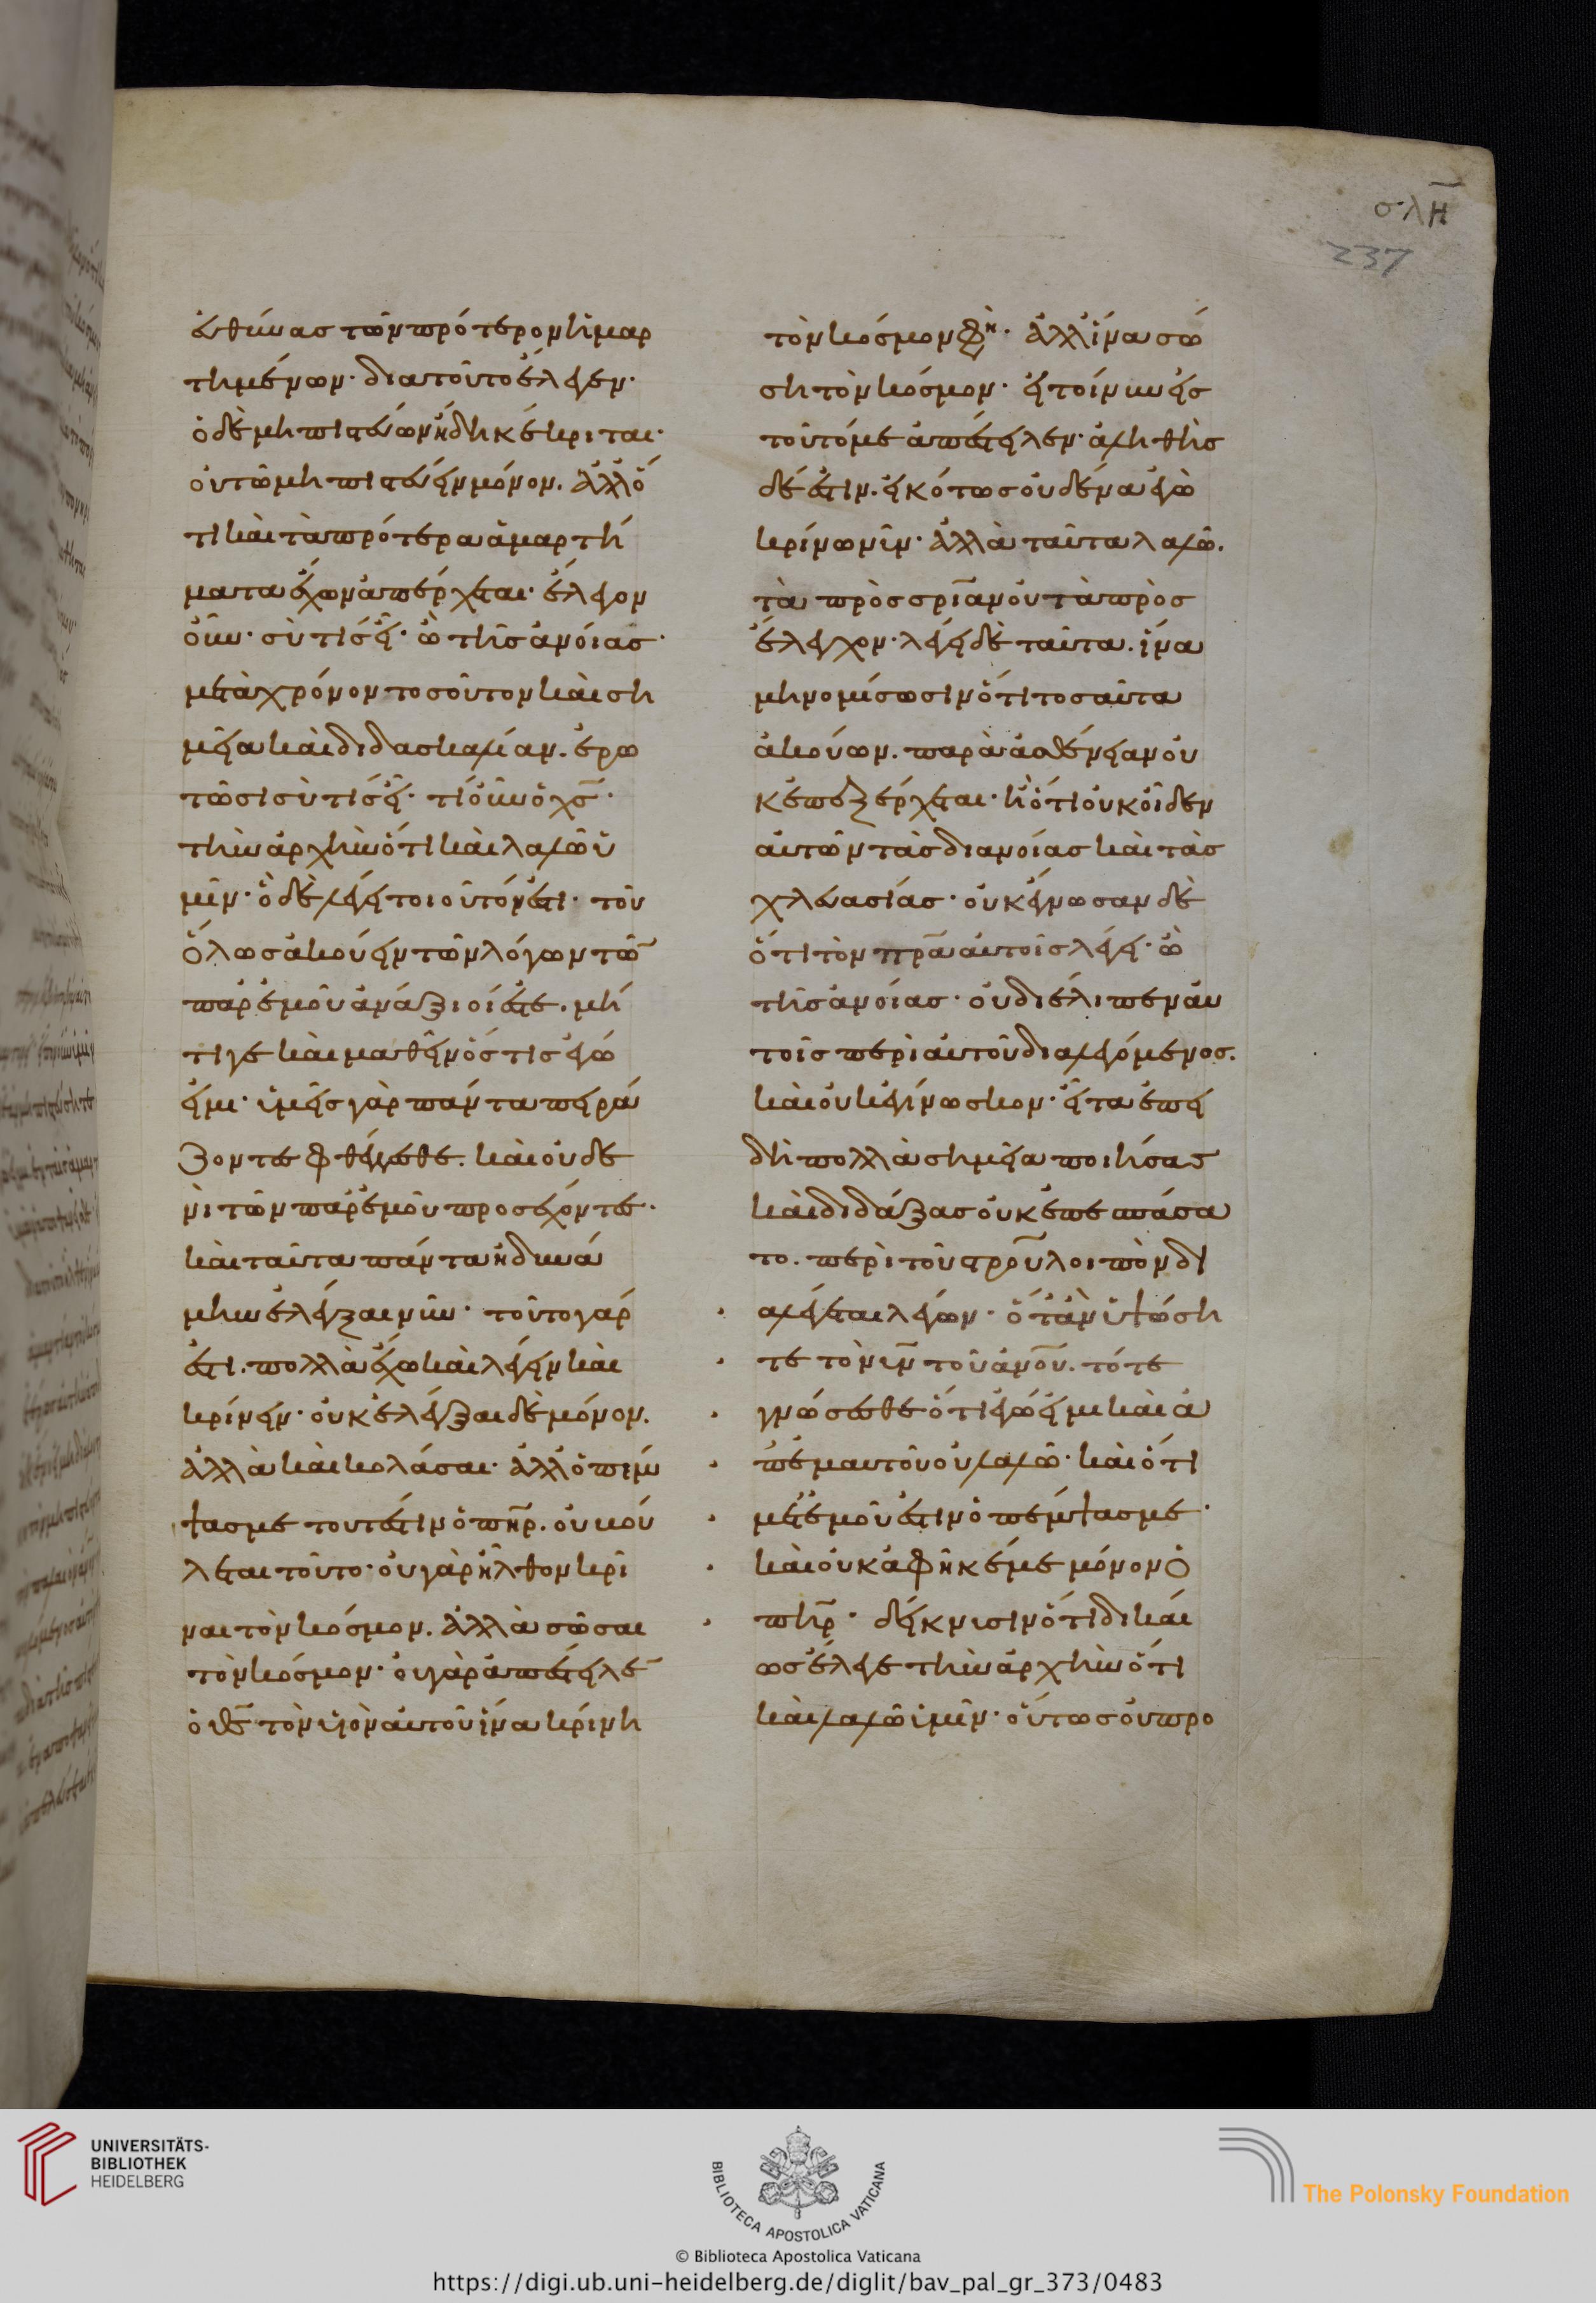 σλη
237
εὐθύνας τῶν πρότερον ἡμαρ
τημένων· διατοῦτο ἔλεγεν·
ὁ δὲ μὴ πιστεύων ἤδη κέκριται·
οὐ τῶ μὴ πιστεύειν μόνον. ἀλλ' ὅ
τι καὶ τὰ πρότερα ἁμαρτή
ματα ἔχων ἀπέρχεται· ἔλεγον
οὖν· σὺ τίς εἶ· ὢ τῆς ἀνοίας·
μετὰ χρόνον τοσοῦτον καὶ ση
μεῖα καὶ διδασκαλίαν. ἐρω
τῶσι σὺ τίς εἶ· τί οὖν ὁ χς·
τὴν ἀρχὴν ὅτι καὶ λαλῶ ὑ
μῖν· ὃ δὲ λέγει τοιοῦτόν ἐστι· τοῦ
ὅλως ἀκούειν τῶν λόγων τῶ
παρ' ἐμοῦ ἀνάξιοί ἐστε. μή
τιγε καὶ μαθεῖν ὅστις ἐγώ
εἰμι· ὑμεῖς γὰρ πάντα πειρά
ζοντες φθέγγεσθε. καὶ οὐδε
νὶ τῶν παρ' ἐμοῦ προσέχοντες·
καὶ ταῦτα πάντα ἠδυνά
μην ἐλέγξαι νῦν· τοῦτο γάρ
ἐστι. πολλὰ ἔχω καὶ λέγειν καὶ
κρίνειν· οὐκ ἐλέγξαι δὲ μόνον.
ἀλλὰ καὶ κολάσαι· ἀλλ' ὁ πέμ
ψας με τουτέστιν ὁ πηρ. οὐ βού
λεται τοῦτο· οὐ γὰρ ἦλθον κρῖ
ναι τὸν κόσμον. ἀλλὰ σῶσαι
τὸν κόσμον· οὐ γὰρ ἀπέστειλε
ὁ θς τὸν υἱὸν αὐτοῦ ἵνα κρίνη
τὸν κόσμον φη· ἀλλ' ἵνα σώ
ση τὸν κόσμον· εἰ τοίνυν εἰς
τοῦτό με ἀπέστειλεν· ἀληθὴς
δέ ἐστιν. εἰκότως οὐδένα ἐγὼ
κρίνω νῦν· ἀλλὰ ταῦτα λαλῶ.
τὰ πρὸς σρίαν οὐ τὰ πρὸς
ἔλεγχον· λέγει δὲ ταῦτα. ἵνα
μὴ νομίσωσιν ὅτι τοσαῦτα
ἀκούων. παρὰ ἀσθένειαν οὐ
κ ἐπεξέρχεται· ἢ ὅτι οὐκ οἶδεν
αὐτῶν τὰς διανοίας καὶ τὰς
χλευασίας· οὐκ ἔγνωσαν δὲ
ὅτι τὸν πρα αὐτοῖς λέγει· ὢ
τῆς ἀνοίας· οὐ διέλιπεν αὐ
τοῖς περὶ αὐτοῦ διαλεγόμενος.
καὶ οὐκ ἐγίνωσκον· εἶτα ἐπει
δὴ πολλὰ σημεῖα ποιήσας
καὶ διδάξας οὐκ ἐπεσπάσα
το. περὶ τοῦ στρου λοιπὸν δι
αλέγεται λέγων· ὅταν ὑψώση
τε τὸν υν τοῦ ανου. τότε
γνώσεσθε ὅτι ἐγώ εἰμι καὶ ἀ
π' ἐμαυτοῦ οὐ λαλῶ· καὶ ὅτι
μετ' ἐμοῦ ἐστιν ὁ πέμψας με·
καὶ οὐκ ἀφῆκέ με μόνον ὁ
πηρ· δείκνυσιν ὅτι δικαί
ως ἔλεγε τὴν ἀρχὴν ὅτι
καὶ λαλῶ ὑμῖν· οὕτως οὐ προ
UNIVERSITÄTS-
BIBLIOTHEK
HEIDELBERG
BIBLIOTECA APOSTOLICA VATICANA
The Polonsky Foundation
© Biblioteca Apostolica Vaticana
https://digi.ub.uni-heidelberg.de/diglit/bav_pal_gr_373/0483